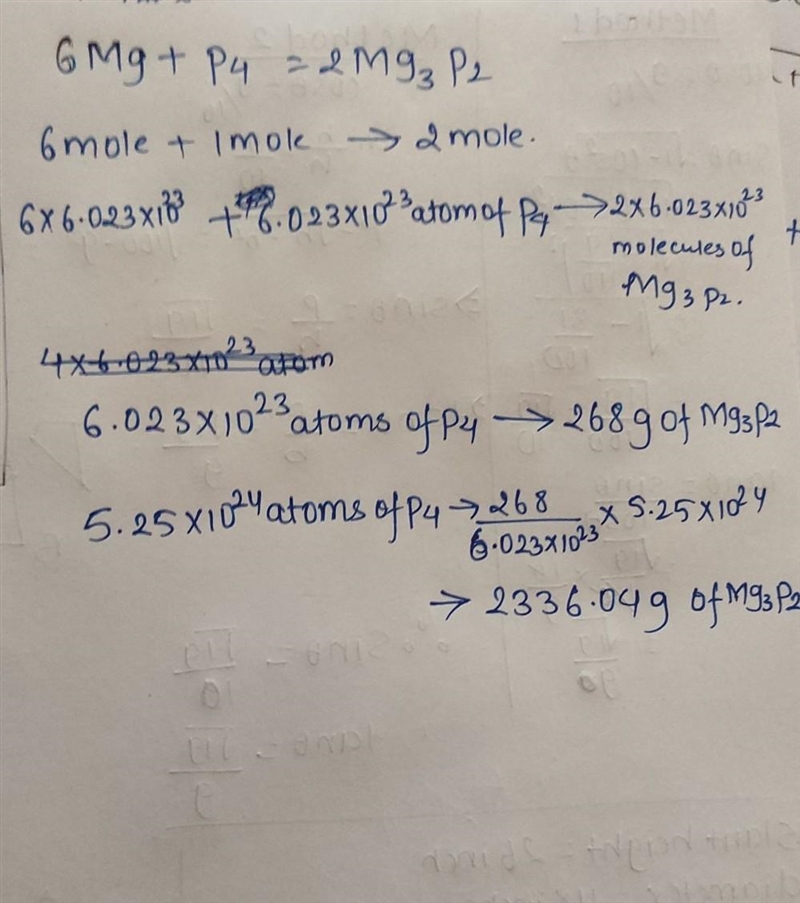 6Mg + P4 = 2Mg3P2
6mole + 1mole → 2mole.
6×6.023×10^23 + 6.023×10^23 atom of P4 → 2×6.023×10^23
molecules of
Mg3P2.
4×6.023×10^23 atom
6.023×10^23 atoms of P4 → 268g of Mg3P2
5.25×10^24 atoms of P4 → 268/6.023×10^23 × 5.25×10^24
→ 2336.04g of Mg3P2